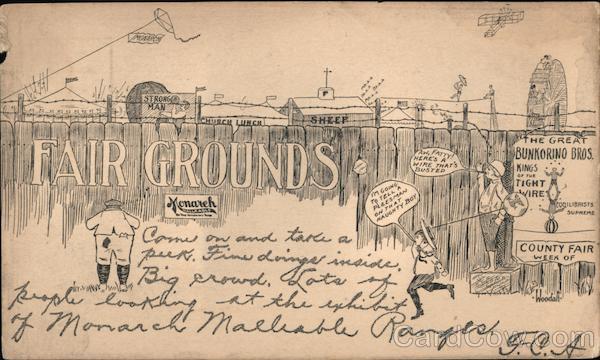 MONARCH
STRONGEST
MAN
CHURCH LUNCH
SHEEP
FAIR GROUNDS
THE GREAT
BUNKORINO BROS.
KINGS
OF THE
TIGHT
WIRE
EQUILIBRISTS
SUPREME
COUNTY FAIR
WEEK OF
HERE'S A
WIRE THAT'S
BUSTED
I'M GOING
TO TELL A
PLEESMAN
ON THAT
NAUGHTY BOY
Monarch
MALLEABLE
Woodall
Come on and take a
peek. Fine doings inside.
Big crowd. Lots of
people looking at the exhibit
of Monarch Malleable Ranges.
G.C.A.
CardCow.com